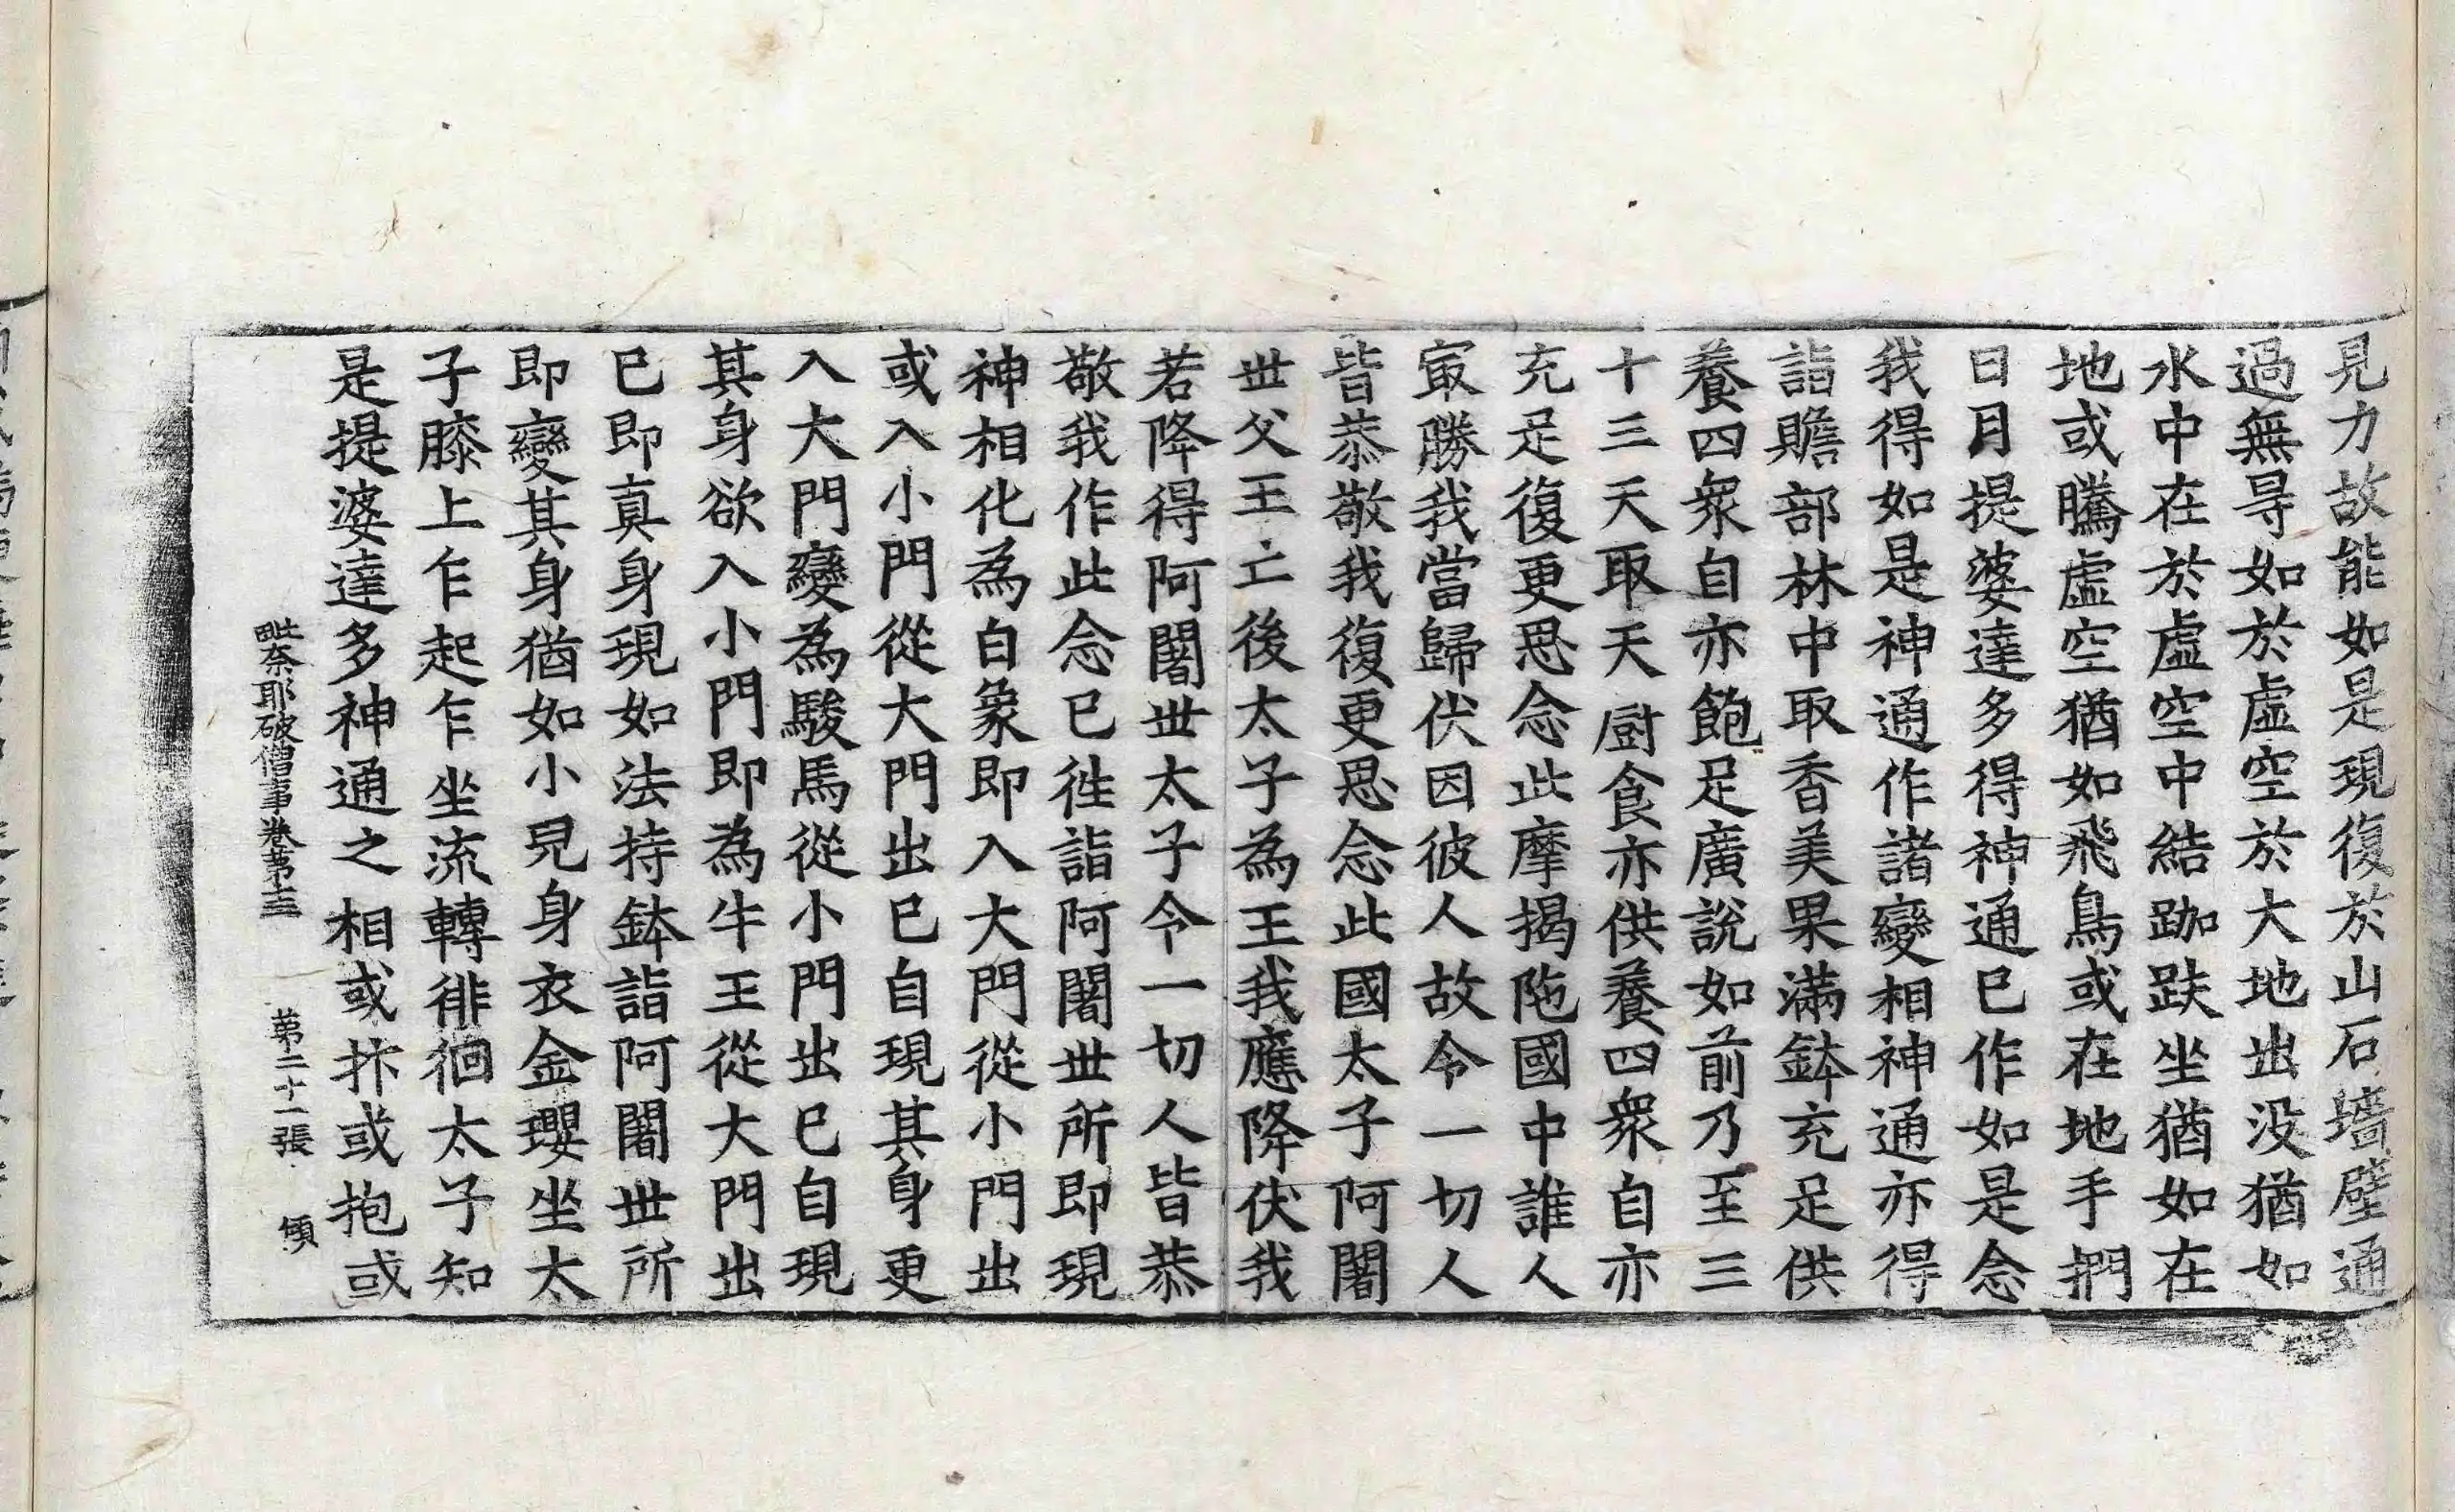 見力故能如是現復於山石墻壁通
過無㝵如於虛空於大地出沒猶如
水中在於虛空中結跏趺坐猶如在
地或騰虛空猶如飛鳥或在地手捫
日月提婆達多得神通已作如是念
我得如是神通作諸變相神通亦得
詣贍部林中取香美果滿鉢充足供
養四衆自亦飽足廣說如前乃至三
十三天取天廚食亦供養四衆自亦
充足復更思念此摩揭陁國中誰人
㝡勝我當歸伏因彼人故令一切人
皆恭敬我復更思念此國太子阿闍
世父王亡後太子為王我應降伏我
若降得阿闍世太子令一切人皆恭
敬我作此念已徃詣阿闍世所即現
神相化為白象即入大門從小門出
或入小門從大門出已自現其身更
入大門變為駿馬從小門出已自現
其身欲入小門即為牛王從大門出
已即真身現如法持鉢詣阿闍世所
即變其身猶如小兒身衣金瓔坐太
子膝上乍起乍坐流轉徘徊太子知
是提婆達多神通之相或抃或抱或
毗奈耶破僧事卷第十三 第二十一張 傾